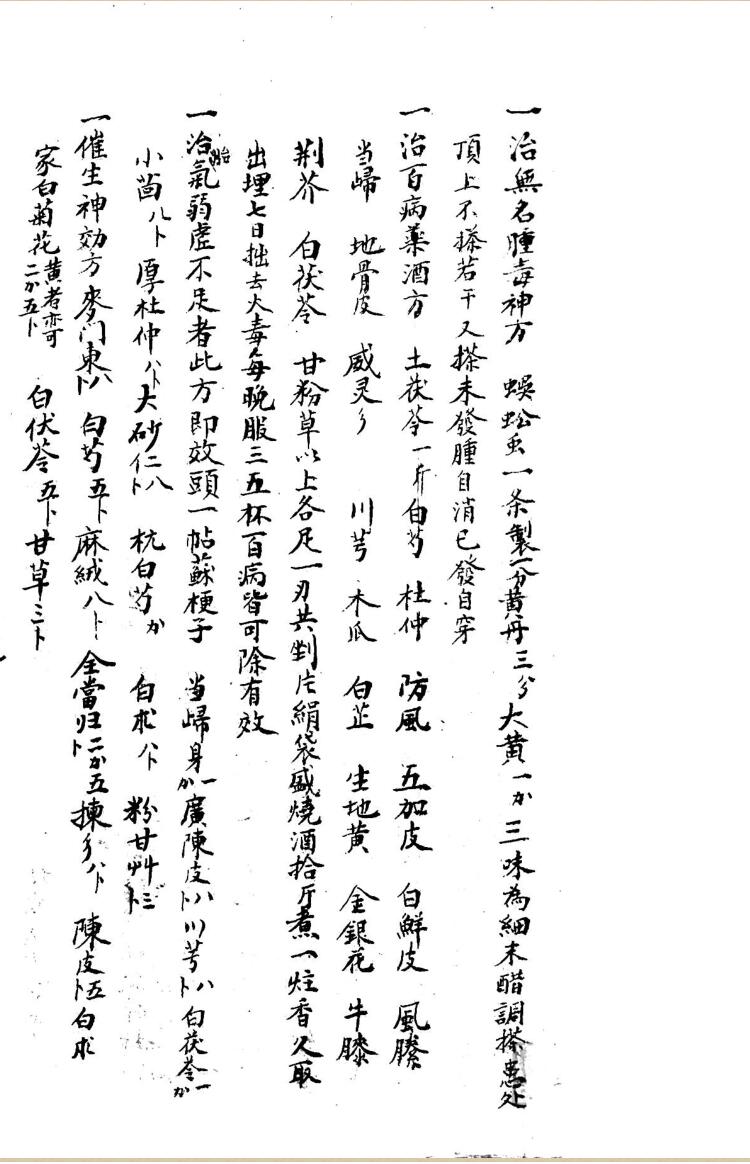 一治無名腫毒神方　蜈蚣虫一条製一分黄丹三分大黄一分三味為細末醋調搽患处
頂上不搽若干又搽未發腫自消已發自穿
一治百病薬酒方　土茯苓一斤白芍　杜仲　防風　五加皮　白鮮皮　風藤
当歸　地骨皮　威灵　川芎　木瓜　白芷　生地黄　金銀花　牛膝
荆芥　白茯苓　甘粉草以上各足一刃共剉片絹袋盛燒酒拾斤煮一炷香久取
出埋七日拙去火毒每晚服三五杯百病皆可除有效
一治胎氣弱虚不足者此方即效頭一帖蘇梗子　当歸身一　廣陳皮八卜川芎八卜白茯苓一
小茴八卜厚杜仲八卜大砂仁八卜　杭白芍　白朮八卜　粉甘艸三卜
一催生神効方麥门東八卜白芍五卜麻絨八卜全當归二五揀八卜　陳皮五卜白朮
家白菊花黄者亦可二五卜　白伏苓五卜甘草三卜